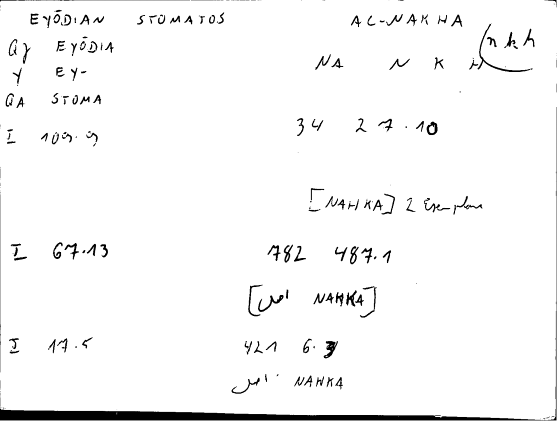 EYŌDIAN STOMATOS AL-NAKHA
EYŌDIA
Y EY- NA N K H
nkh
GA STOMA
I 109.9 34 27.10
[NAHKA] 2
I 67.13 782 487.1
[اصل NAHKA]
I 17.5 421 6.3
اصل NAHKA